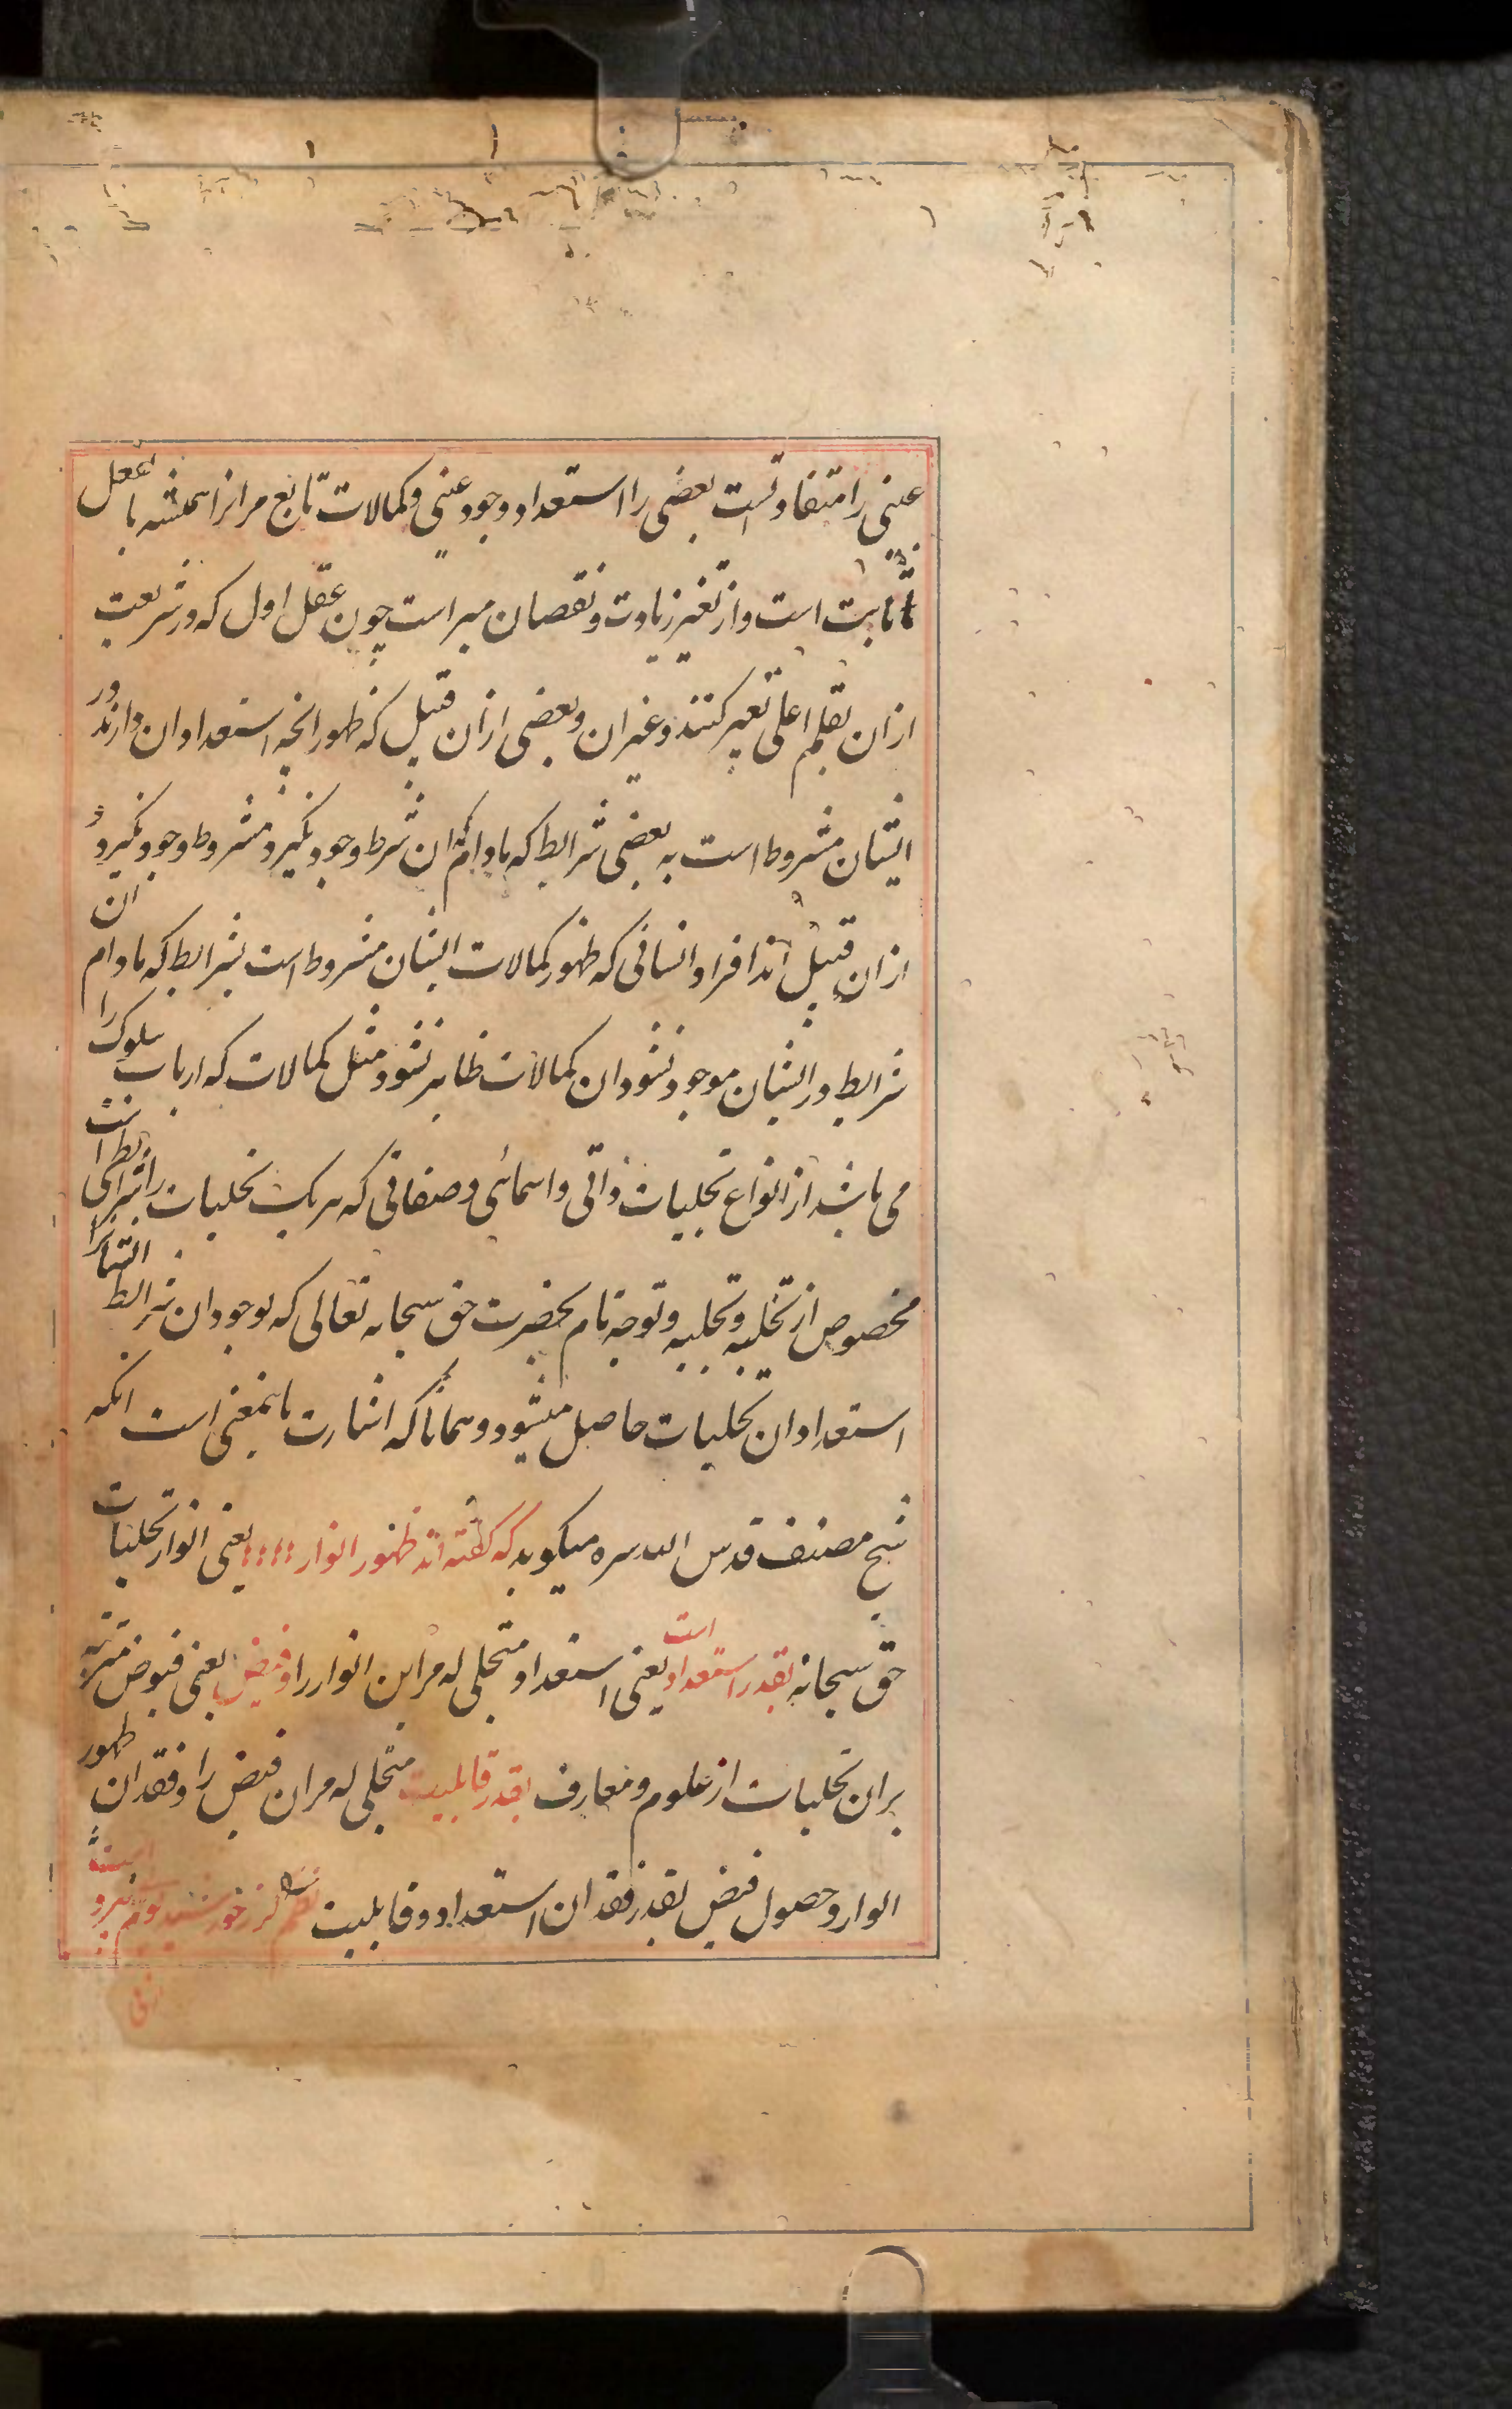 عینی را متفاوتست بعضی را استعداد وجود عینی و کمالات تابع مر انرا همیشه بالفعل
ثابت است و از تغیر زیادت و نقصان مبراست چون عقل اول که در شریعت
ازان بقلم اعلی تعبیر کنند و غیر ان و بعضی ازان قبیل که ظهور انچه استعداد ان دارند در
ایشان مشروط است به بعضی شرایط که مادام که ان شرط وجود نگیرد مشروط وجود نگیرد و
ازان قبیل اند افراد انسانی که ظهور کمالات ایشان مشروط است بشرایط که مادام ان
شرایط در ایشان موجود نشود ان کمالات ظاهر نشود مثل کمالات که ارباب سلوک را
می باشد از انواع تجلیات ذاتی و اسمائی و صفاتی که هر یک تجلیات را شرایط است
مخصوص از تخلیه و تحلیه و توجه تام بحضرت حق سبحانه تعالی که بوجود ان شرایط ایشانرا
استعداد ان تجلیات حاصل میشود و همانا که اشارت باینمعنی است انکه
شیخ مصنف قدس الله سره میکوید که کفته اند ظهور انوار یعنی انوار تجلیات
حق سبحانه بقدر استعداد است یعنی استعداد متجلی له مر این انوار را و فیض یعنی فیوض مترتبه
بران تجلیات از علوم و معارف بقدر قابلیت متجلی له مران فیض را و فقدان ظهور
انوار و حصول فیض بقدر فقدان استعداد و قابلیت است نظم کر ز خورشید بوم بی نیرو است